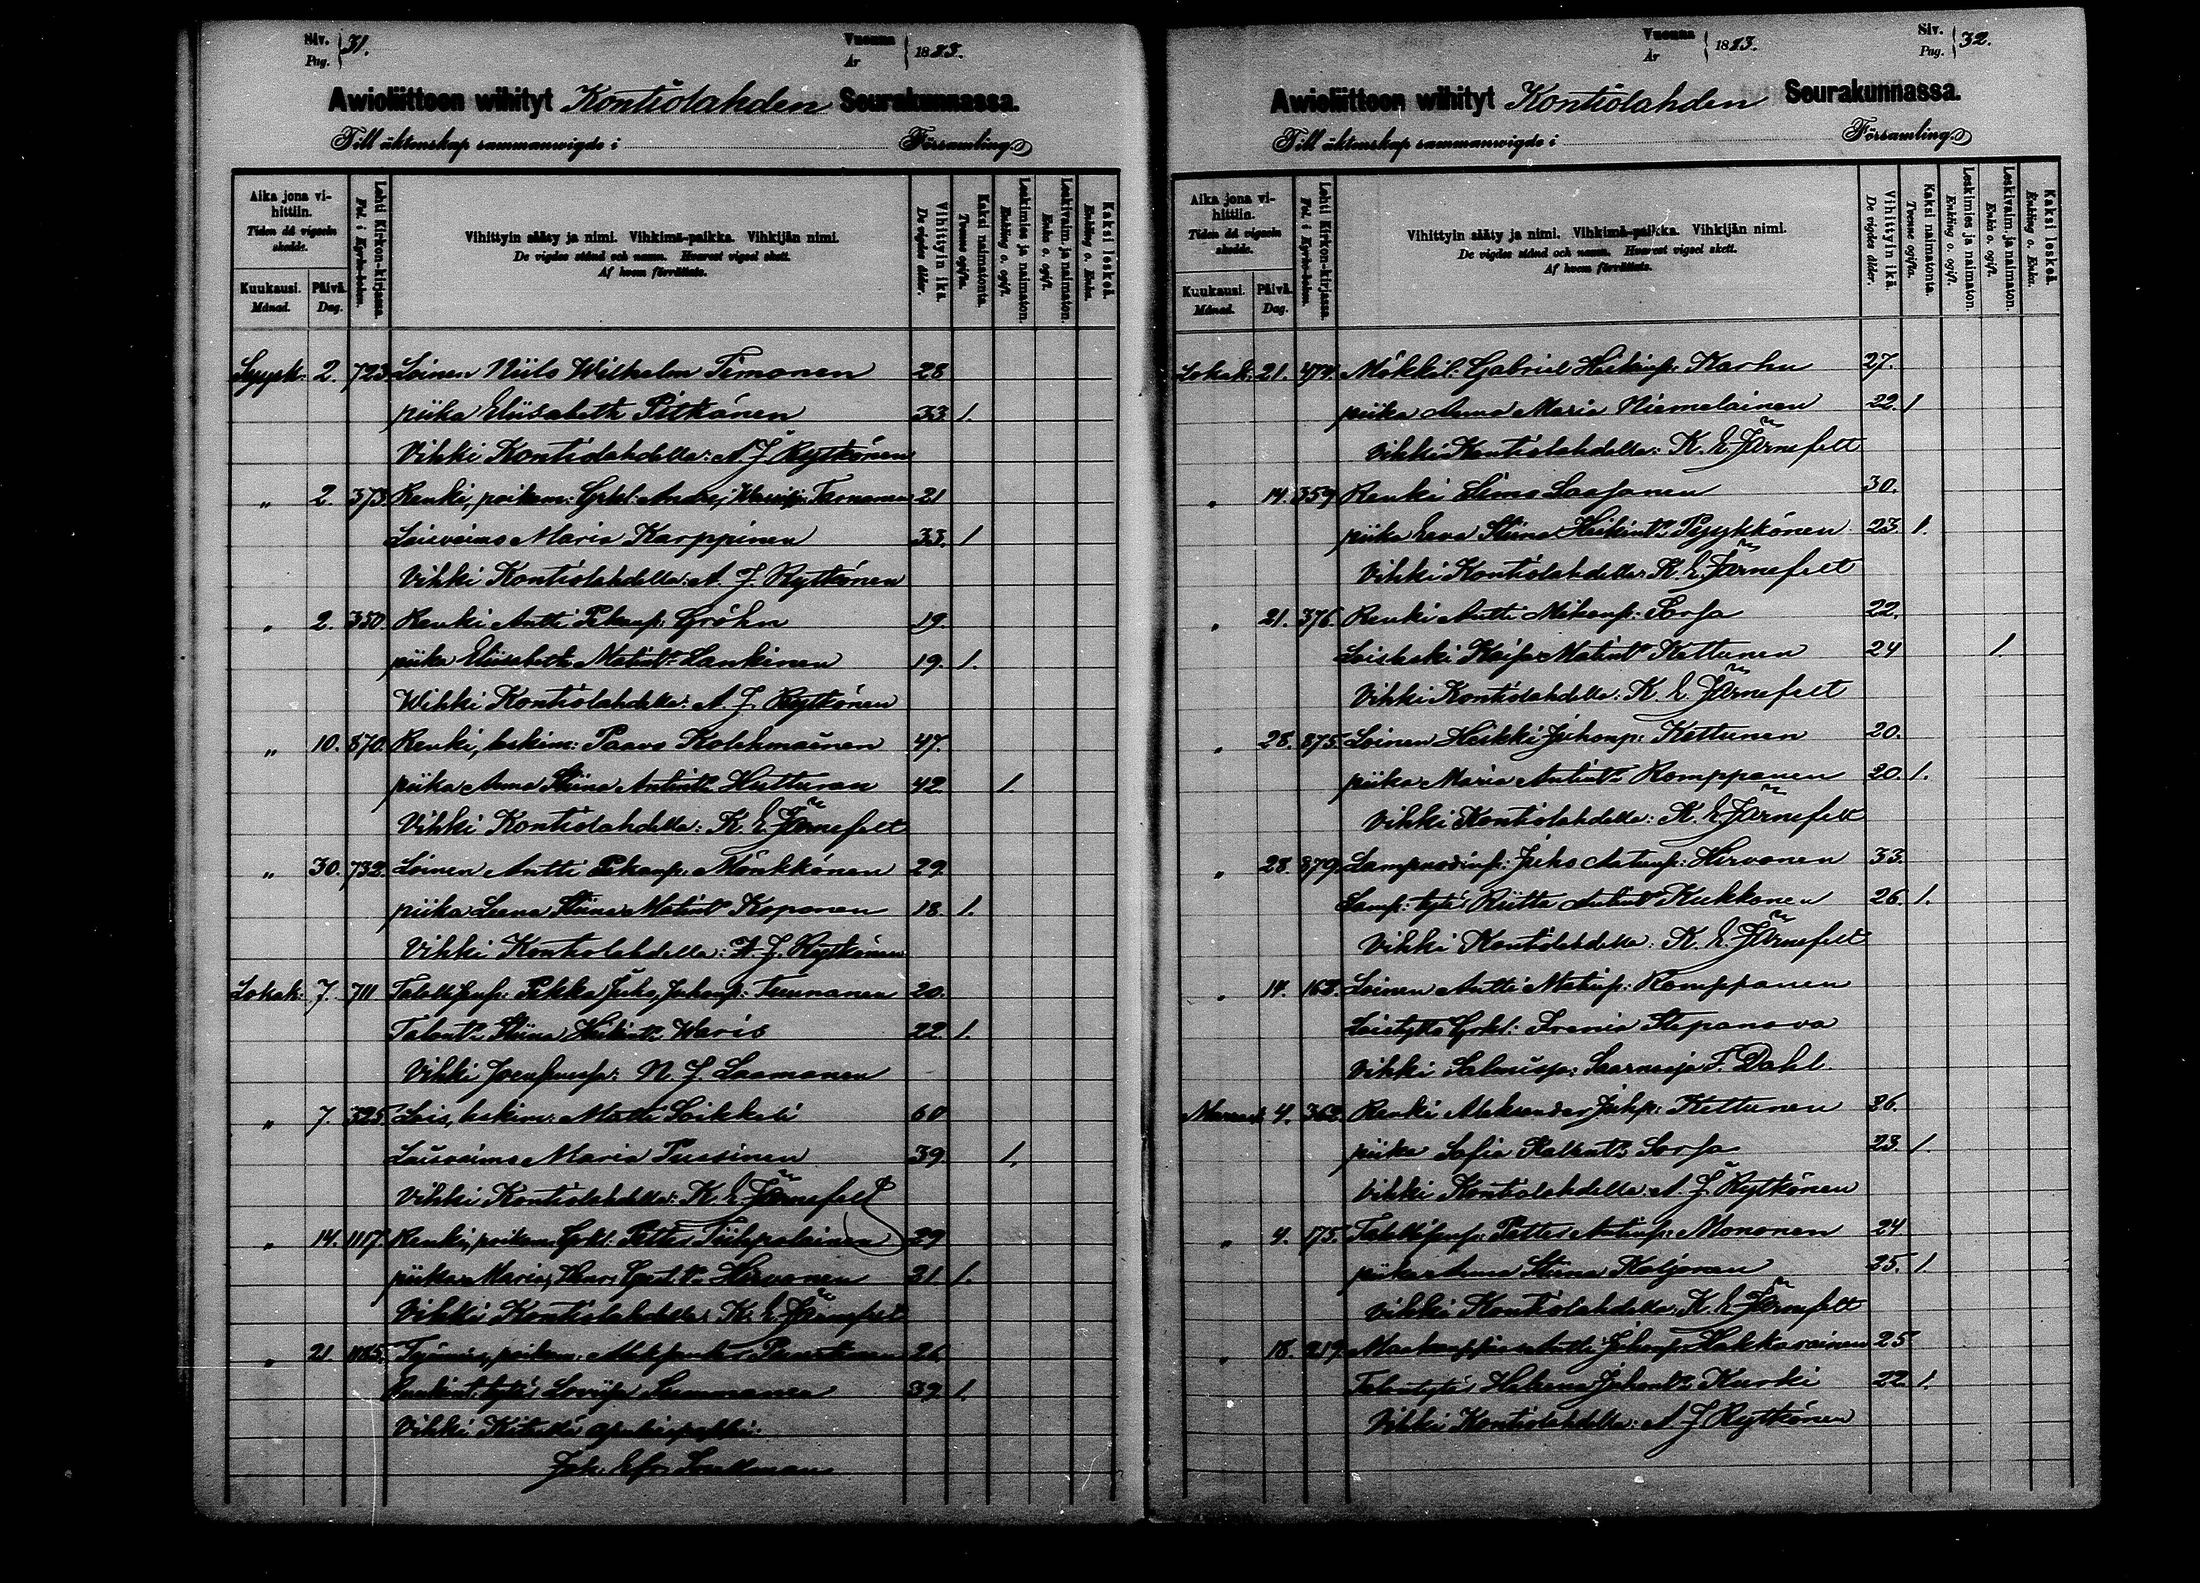 Siv. Pag. 31. Vuonna År 1883.
Awioliittoon wihityt Kontiolahden Seurakunnassa.
Till äktenskap sammanwigde i Församling.
Aika jona vihittiin. Tiden då vigseln skedde.
Kuukausi. Månad. Päivä. Dag.
Lehti Kirkon-kirjassa. Fol. i Kyrko-boken.
Vihittyin sääty ja nimi. Vihkimä-paikka. Vihkijän nimi.
De vigdes stånd och namn. Hvarest vigsel skett.
Af hvem förrättats.
Vihittyin ikä. De vigdes ålder.
Kaksi naimatonta. Tvenne ogifta.
Leskimies ja naimaton. Enkling o. ogift.
Leskivaim. ja naimaton. Enka o. ogift.
Kaksi leskeä. Enkling o. Enka.
Syysk. 2. 723 Loinen Niilo Wilhelm Timonen 28
piika Eliisabeth Pitkänen 33 1.
Vihki Kontiolahdella: A. J. Rytkönen
" 2. 373 Renki, poikam: Grkl: Andrej 21
Loisvaimo Maria Karppinen 33. 1
Vihki Kontiolahdella: A. J. Rytkönen
" 2. 350. Renki Antti Pekanp: Gröhn 19.
piika Eliisabeth Matint. Lankinen 19. 1.
Wihki Kontiolahdella: A. J. Rytkönen
" 10. 870. Renki, leskim: Paavo Kolehmainen 47.
piika Anna Stiina Antint. Hutturan 42 1
Vihki Kontiolahdella: K. E. Järnefelt
" 30. 732. Loinen Antti Pekanp: Mönkkönen 29
piika Leena Stiina Matint. Koponen 18. 1.
Vihki Kontiolahdella: A. J. Rytkönen
Lokak: 7. 711 Pekka Juho Juhonp: Turunanen 20.
Talont. Stiina Heikint. Waris 22. 1.
Vihki Joensuussa: N. J. Laamanen
" 7. 325. Lois, leskim: Matti Loikkeli 60
Loisvaimo Maria Pussinen 39 1.
Vihki Kontiolahdella: K. E. Järnefelt
" 14. 1117. Renki, poikam. Grkl: Petter Tiihpalainen 29
piika Maria Hirvonen 21 1.
Vihki Kontiolahdella: K. E. Järnefelt
" 21. 1185. poikam: 26
tytö Loviisa Summanen 39. 1.
Vihki
Joh: Efr.
Vuonna År 1883. Siv. Pag. 32.
Awioliittoon wihityt Kontiolahden Seurakunnassa.
Till äktenskap sammanwigde i Församling.
Aika jona vihittiin. Tiden då vigseln skedde.
Kuukausi. Månad. Päivä. Dag.
Lehti Kirkon-kirjassa. Fol. i Kyrko-boken.
Vihittyin sääty ja nimi. Vihkimä-paikka. Vihkijän nimi.
De vigdes stånd och namn. Hvarest vigsel skett.
Af hvem förrättats.
Vihittyin ikä. De vigdes ålder.
Kaksi naimatonta. Tvenne ogifta.
Leskimies ja naimaton. Enkling o. ogift.
Leskivaim. ja naimaton. Enka o. ogift.
Kaksi leskeä. Enkling o. Enka.
Lokak: 21. 474. Mökkil: Gabriel Heikinp: Karhu 27.
piika Anna Maria Niemelainen 22. 1
Vihki Kontiolahdella: K. E. Järnefelt
" 14. 359 Renki Simo Laasonen 30.
piika Eeva Stiina Heikint. Pyykkönen 23. 1.
Vihki Kontiolahdella: K. E. Järnefelt
" 21. 376. Renki Antti Mikonp: Sorsa 22.
Loisleski Kaisa Matint. Kettunen 24 1.
Vihki Kontiolahdella: K. E. Järnefelt
" 28. 875. Loinen Heikki Juhonp: Kettunen 20.
piika Maria Antint. Romppanen 20. 1.
Vihki Kontiolahdella: K. E. Järnefelt
" 28. 879. Lampuodinp: Juho Antinp: Hirvonen 33
Lamp: tytö Riitta Antint. Kukkonen 26. 1.
Vihki Kontiolahdella: K. E. Järnefelt
" 14. 162. Loinen Antti Matinp: Romppanen
Loistyttö Grkl: Irenia Stepanova
Vihki Salmissa: Saarnaaja F. Dahl.
Marrask 4. 362. Renki Aleksander Juhp: Kettunen 26.
piika Sofia Kallent. Sorsa 23. 1.
Vihki Kontiolahdella: A. J. Rytkönen
" 4. 175. Petter Antinp: Mononen 24
piika Anna Stiina Kaljonen 25. 1.
Vihki Kontiolahdella: K. E. Järnefelt
" 18. 219. Antti Juhonp: Hakkarainen 25
Talontytö Helena Juhont. Kurki 22. 1.
Vihki Kontiolahdella: A. J. Rytkönen